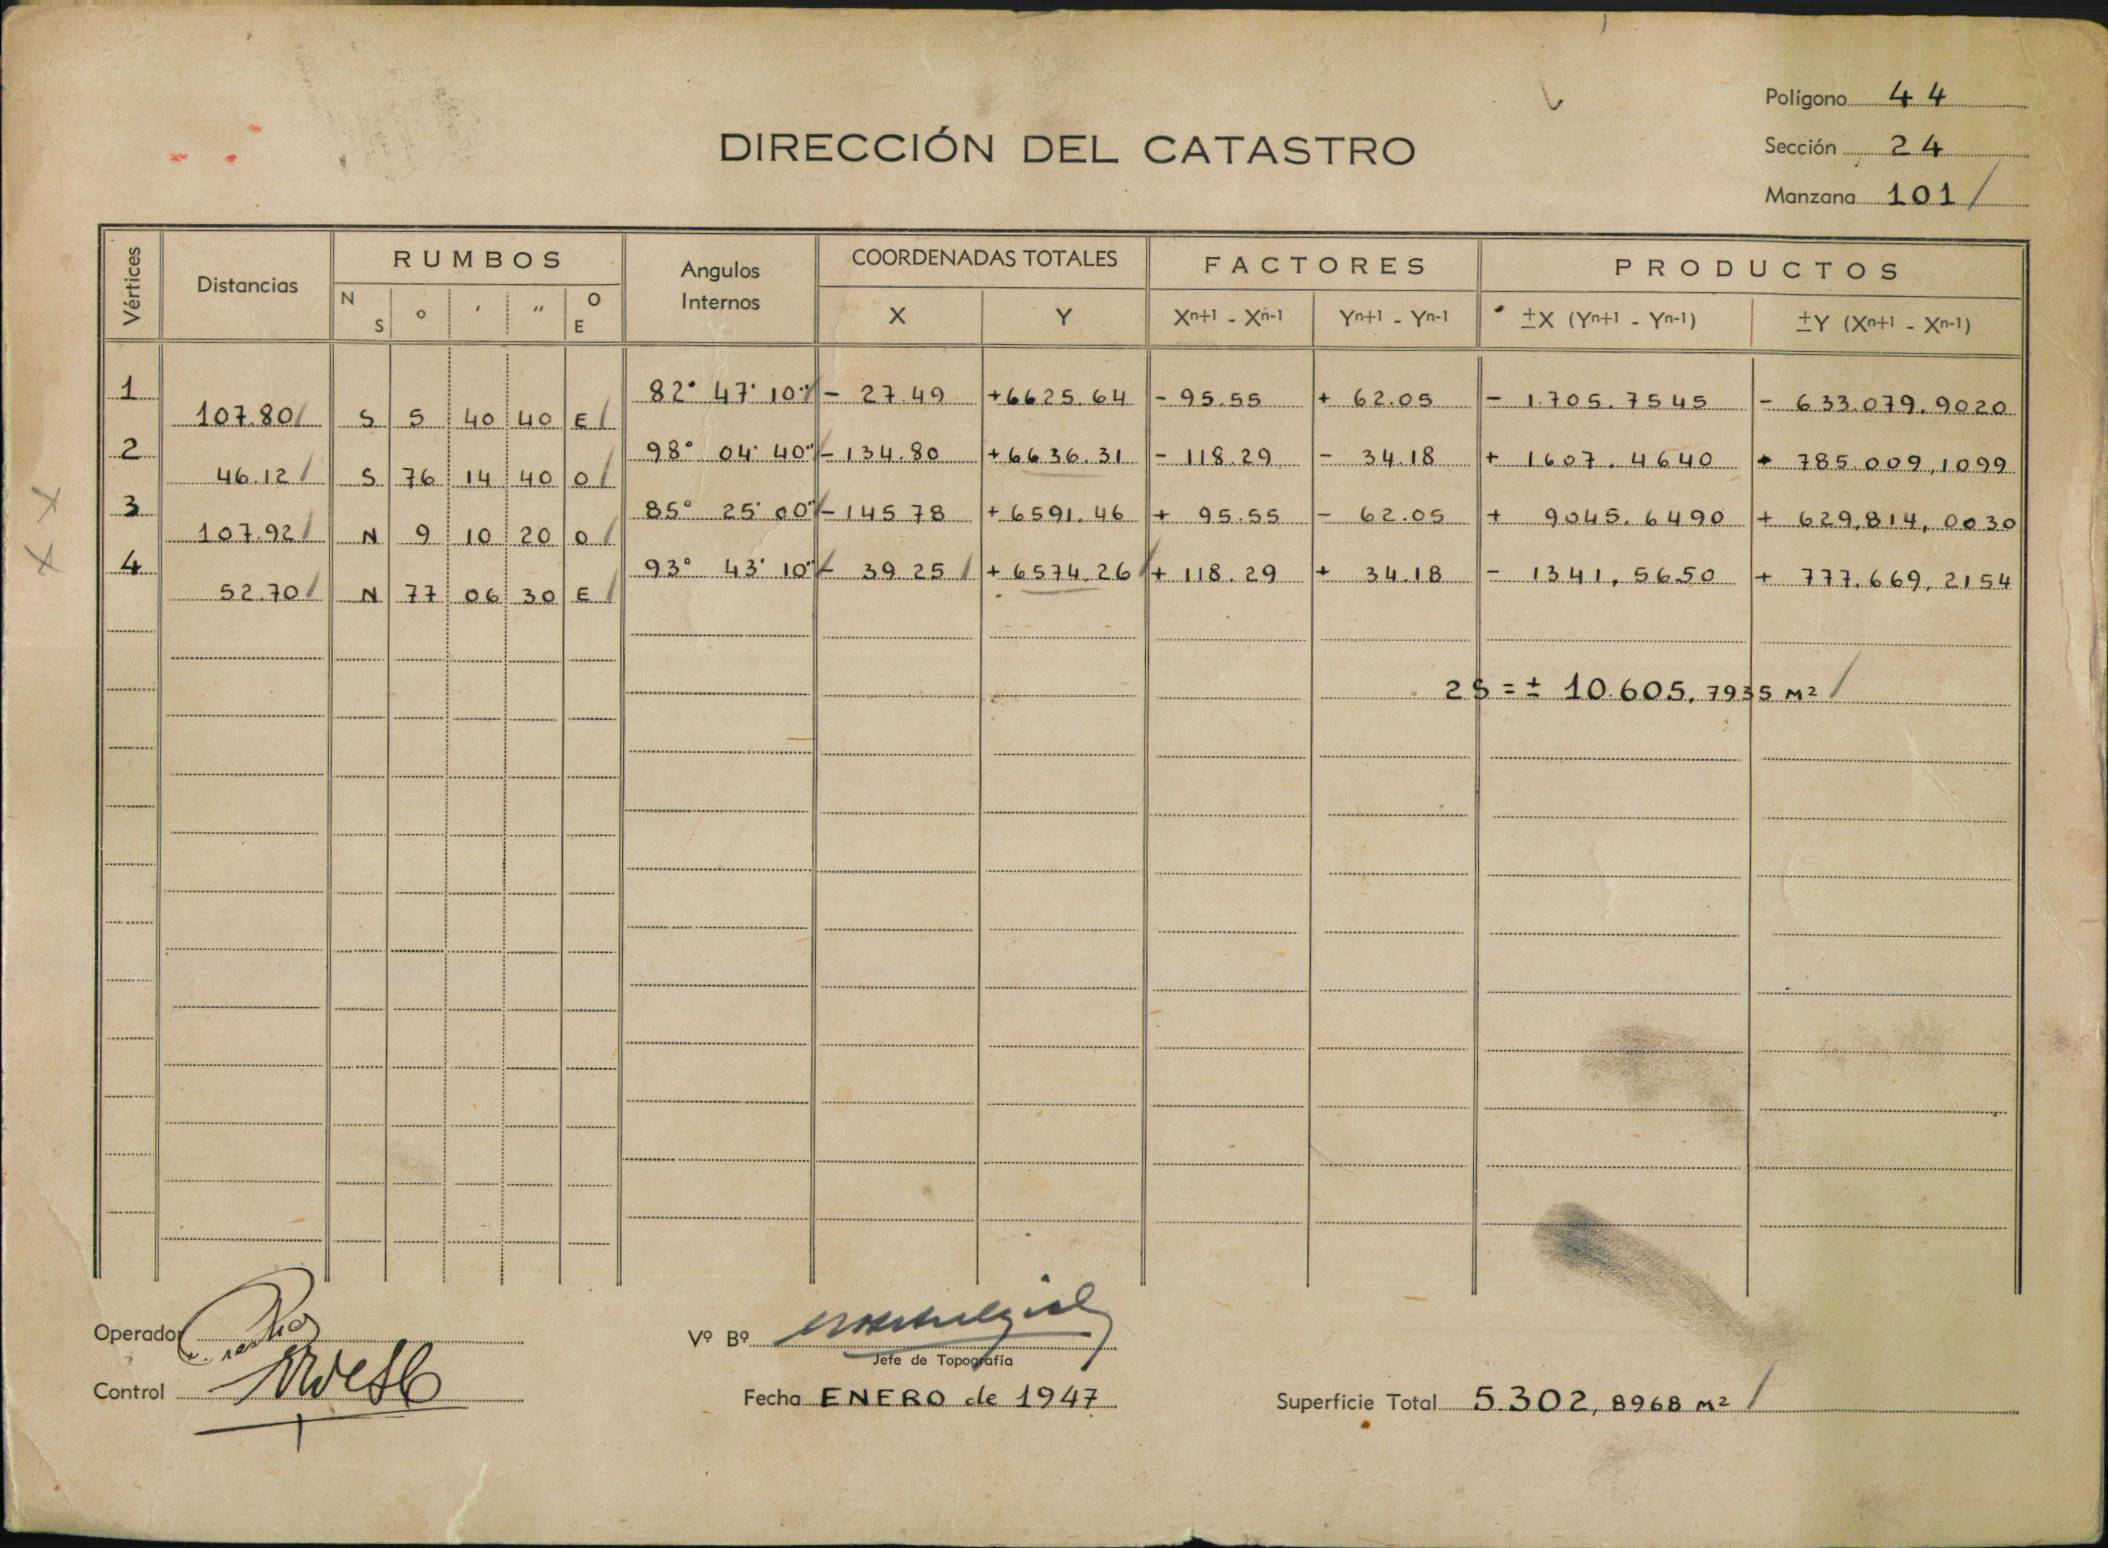 Polígono 44
DIRECCIÓN DEL CATASTRO
Sección 24
Manzana 101
Vértices Distancias RUMBOS Angulos Internos COORDENADAS TOTALES FACTORES PRODUCTOS
N S o ' " O E X Y Xn+1 - Xn-1 Yn+1 - Yn-1 ±X (Yn+1 - Yn-1) ±Y (Xn+1 - Xn-1)
1 82° 47' 10" - 27.49 +6625.64 - 95.55 + 62.05 - 1.705.7545 - 633.079.9020
107.80 S 5 40 40 E
2 98° 04' 40" - 134.80 +6636.31 - 118.29 - 34.18 + 1607.4640 + 785.009,1099
46.12 S 76 14 40 O
3 85° 25' 00" - 145 78 + 6591.46 + 95.55 - 62.05 + 9045.6490 + 629,814,0030
107.92 N 9 10 20 O
4 93° 43' 10" - 39 25 + 6574.26 + 118.29 + 34.18 - 1341,5650 + 777.669,2154
52.70 N 77 06 30 E
2S = ± 10.605,7935 M²
Operador
Vº Bº
Jefe de Topografía
Control
Fecha ENERO de 1947
Superficie Total 5.302,8968 M²